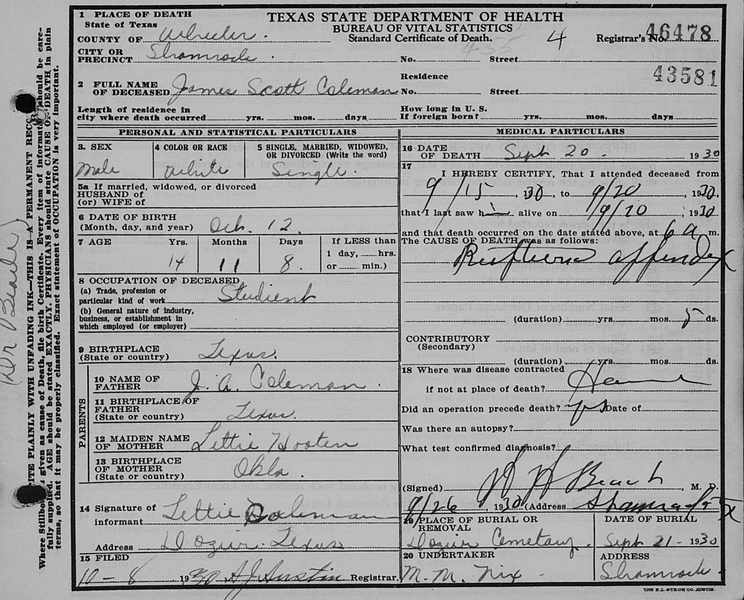 1 PLACE OF DEATH
State of Texas
COUNTY OF Wheeler
CITY OR
PRECINCT Shamrock
TEXAS STATE DEPARTMENT OF HEALTH
BUREAU OF VITAL STATISTICS
Standard Certificate of Death. 4
Registrar's No. 46478
No. Street
Residence 43581
2 FULL NAME
OF DECEASED James Scott Coleman No. Street
Length of residence in
city where death occurred yrs. mos. days
How long in U. S.
If foreign born? yrs. mos. days
PERSONAL AND STATISTICAL PARTICULARS
3. SEX
Male
4 COLOR OR RACE
White
5 SINGLE, MARRIED, WIDOWED,
OR DIVORCED (Write the word)
Single.
5a If married, widowed, or divorced
HUSBAND of
(or) WIFE of
6 DATE OF BIRTH
(Month, day, and year) Oct. 12.
7 AGE Yrs. Months Days If LESS than
1 day, hrs.
or min.)
14 11 8.
8 OCCUPATION OF DECEASED
(a) Trade, profession or
particular kind of work Studient
(b) General nature of industry,
business, or establishment in
which employed (or employer)
9 BIRTHPLACE
(State or country) Texas.
PARENTS
10 NAME OF
FATHER J. A. Coleman.
11 BIRTHPLACE OF
FATHER
(State or country) Texas.
12 MAIDEN NAME
OF MOTHER Lettie Hooten
13 BIRTHPLACE
OF MOTHER
(State or country) Okla.
14 Signature of
informant Lettie Coleman
Address Dozier Texas
15 FILED
10-8 1930 A J Austin Registrar
MEDICAL PARTICULARS
16 DATE
OF DEATH Sept 20. 1930
17 I HEREBY CERTIFY, That I attended deceased from
9/15 30, to 9/20 1930
that I last saw him alive on 9/20 1930
and that death occurred on the date stated above, at 6 a m.
The CAUSE OF DEATH was as follows:
appendix
(duration) yrs. mos. 5 ds.
CONTRIBUTORY
(Secondary)
(duration) yrs. mos. ds.
18 Where was disease contracted
if not at place of death?
Did an operation precede death? yes Date of
Was there an autopsy?
What test confirmed diagnosis?
(Signed) Beach M. D.
9/26 1930 (Address Shamrock Tx
19 PLACE OF BURIAL OR
REMOVAL
Dozier Cemetary.
DATE OF BURIAL
Sept 21-1930
20 UNDERTAKER
M. M. Nix
ADDRESS
Shamrock
Where Stillborn
WRITE PLAINLY WITH UNFADING INK—THIS IS A PERMANENT
fully supplied. AGE should be stated EXACTLY. PHYSICIANS should state CAUSE OF DEATH in plain
terms, so that it may be properly classified. Exact statement of OCCUPATION is very important.